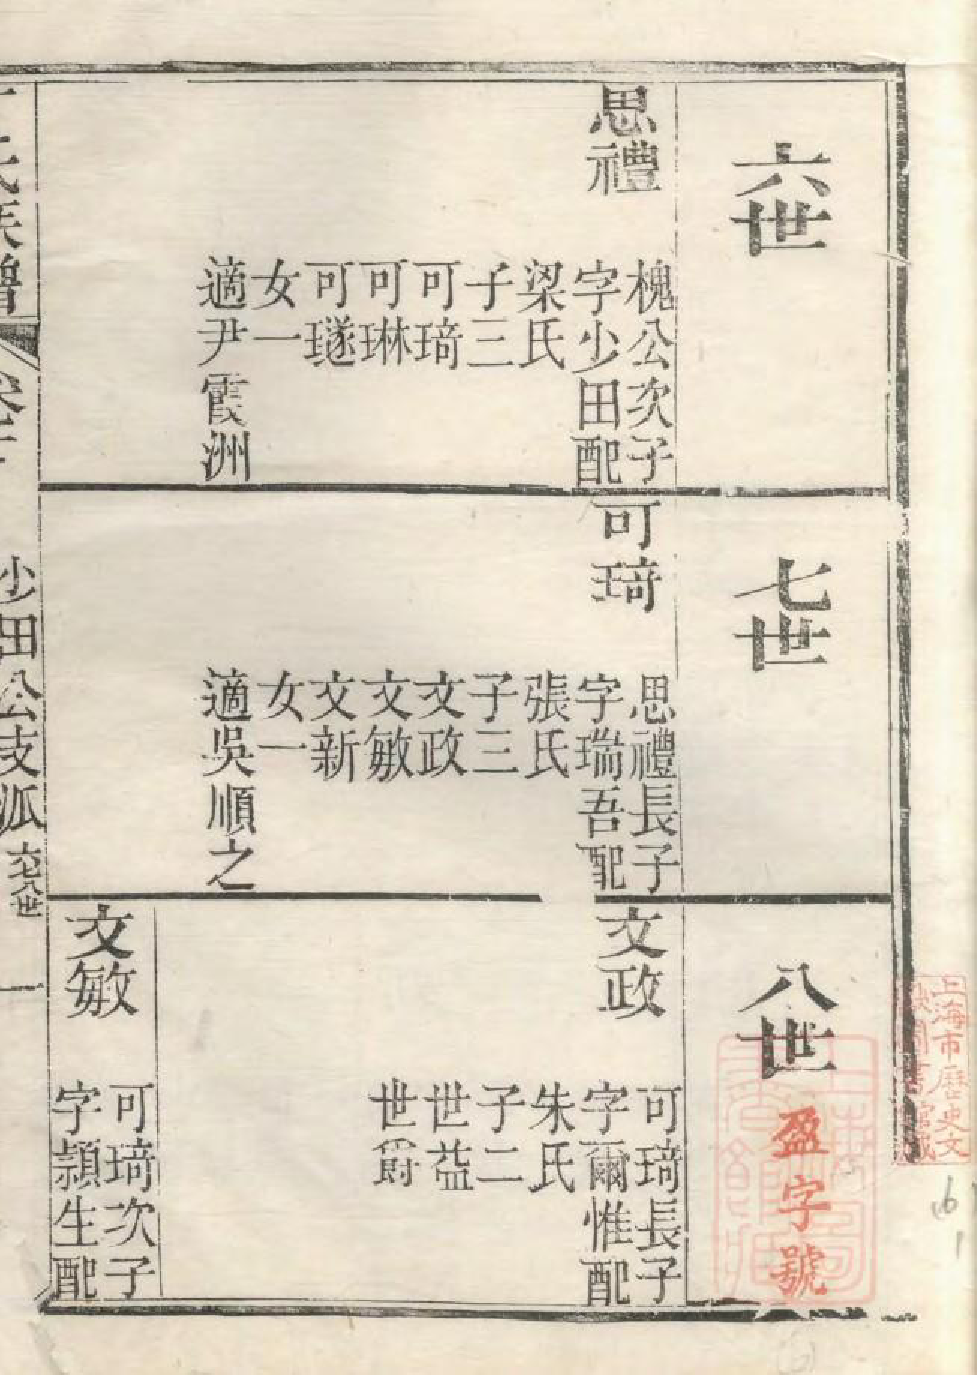 六世
思禮
槐公次子
字少田配
梁氏
子三
可琦
可琳
可璲
女一
適尹霞洲
七世
可琦
思禮長子
字瑞吾配
張氏
子三
文政
文敏
文新
女一
適吳順之
八世
文政
可琦長子
字爾惟配
朱氏
子二
世益
世爵
文敏
可琦次子
字頴生配
氏族譜
少田公支派
六七八世
一
盈字號
上海市歷史文
獻圖書館藏